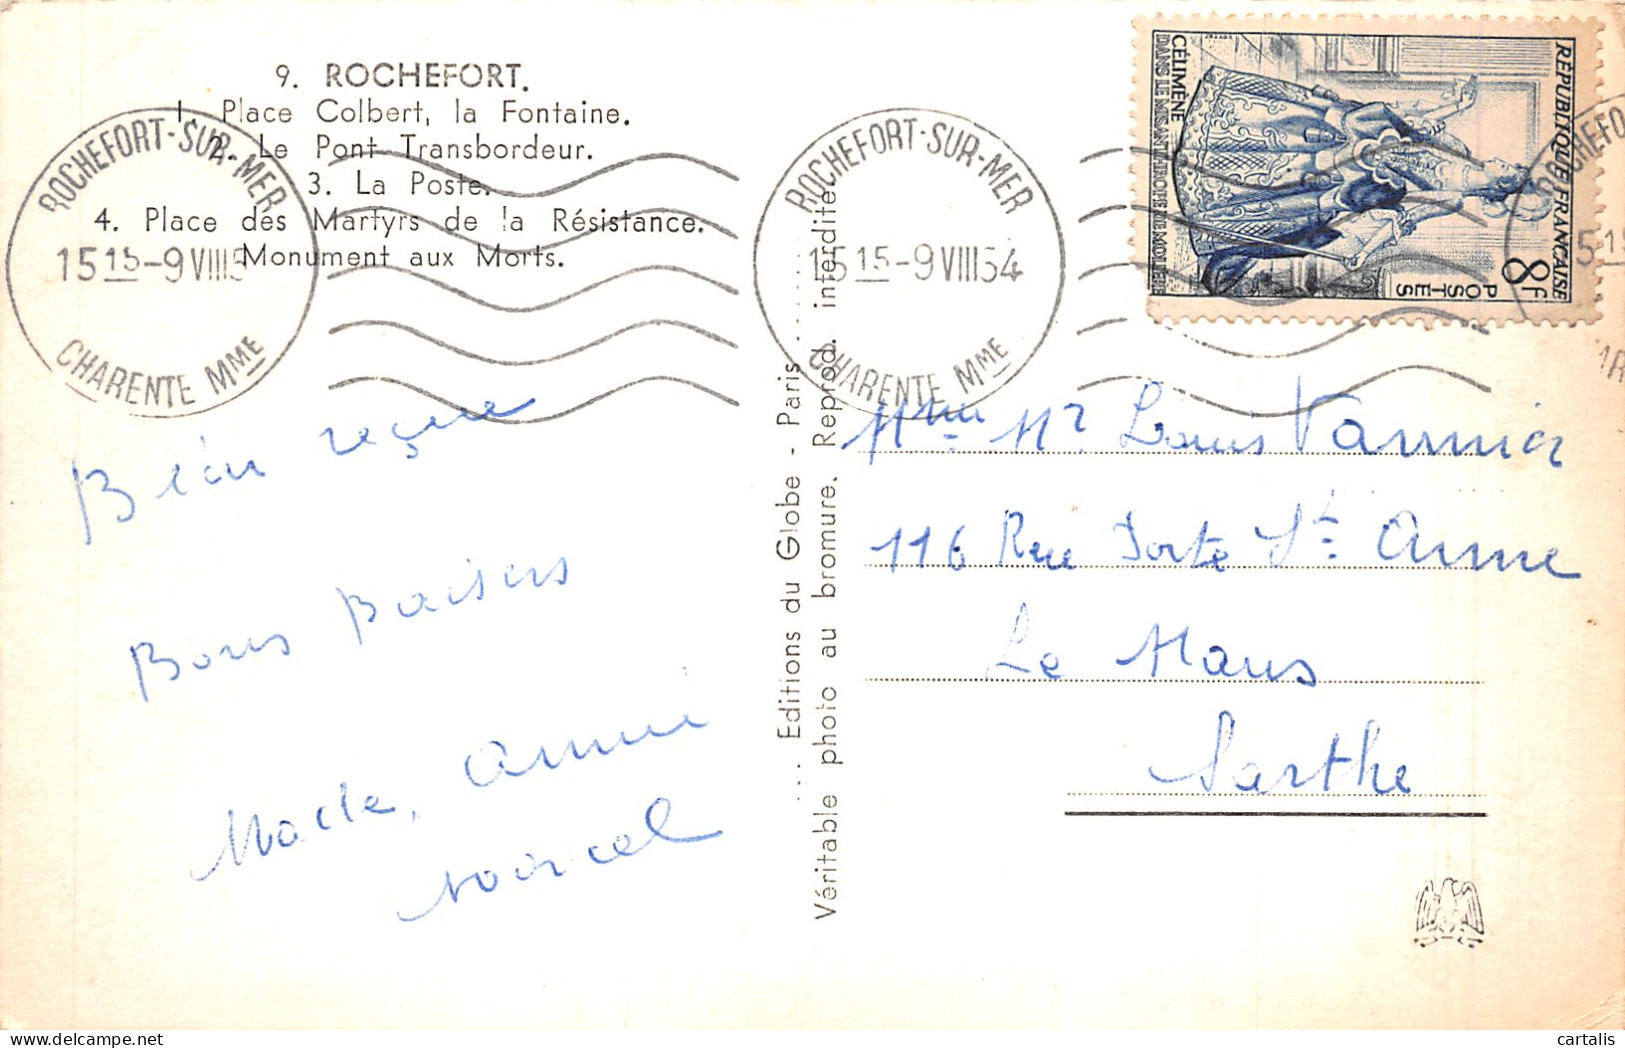 9. ROCHEFORT.
1. Place Colbert, la Fontaine.
2. Le Pont Transbordeur.
3. La Poste.
4. Place des Martyrs de la Résistance.
Monument aux Morts.
ROCHEFORT-SUR-MER
15 15 -9 VIII 5
CHARENTE MME
ROCHEFORT-SUR-MER
15 15 -9 VIII 54
CHARENTE MME
RÉPUBLIQUE FRANÇAISE
8F
POSTES
CÉLIMÈNE
DANS LE MISANTHROPE DE MOLIÈRE
Bien reçue
Bons Baisers
Made, Annie
Marcel
... Editions du Globe - Paris ........
Véritable photo au bromure. Reprod. interdite
Mme Mr Louis Vannier
116 Rue Porte Ste Anne
Le Mans
Sarthe
cartalis
delcampe.net